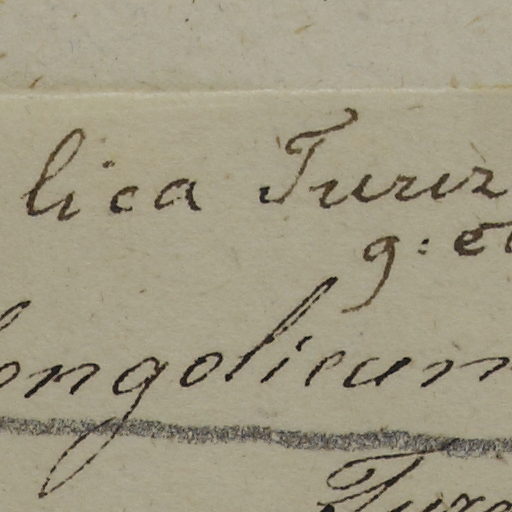 lica Turcz
g: et
ongolicum
Turc